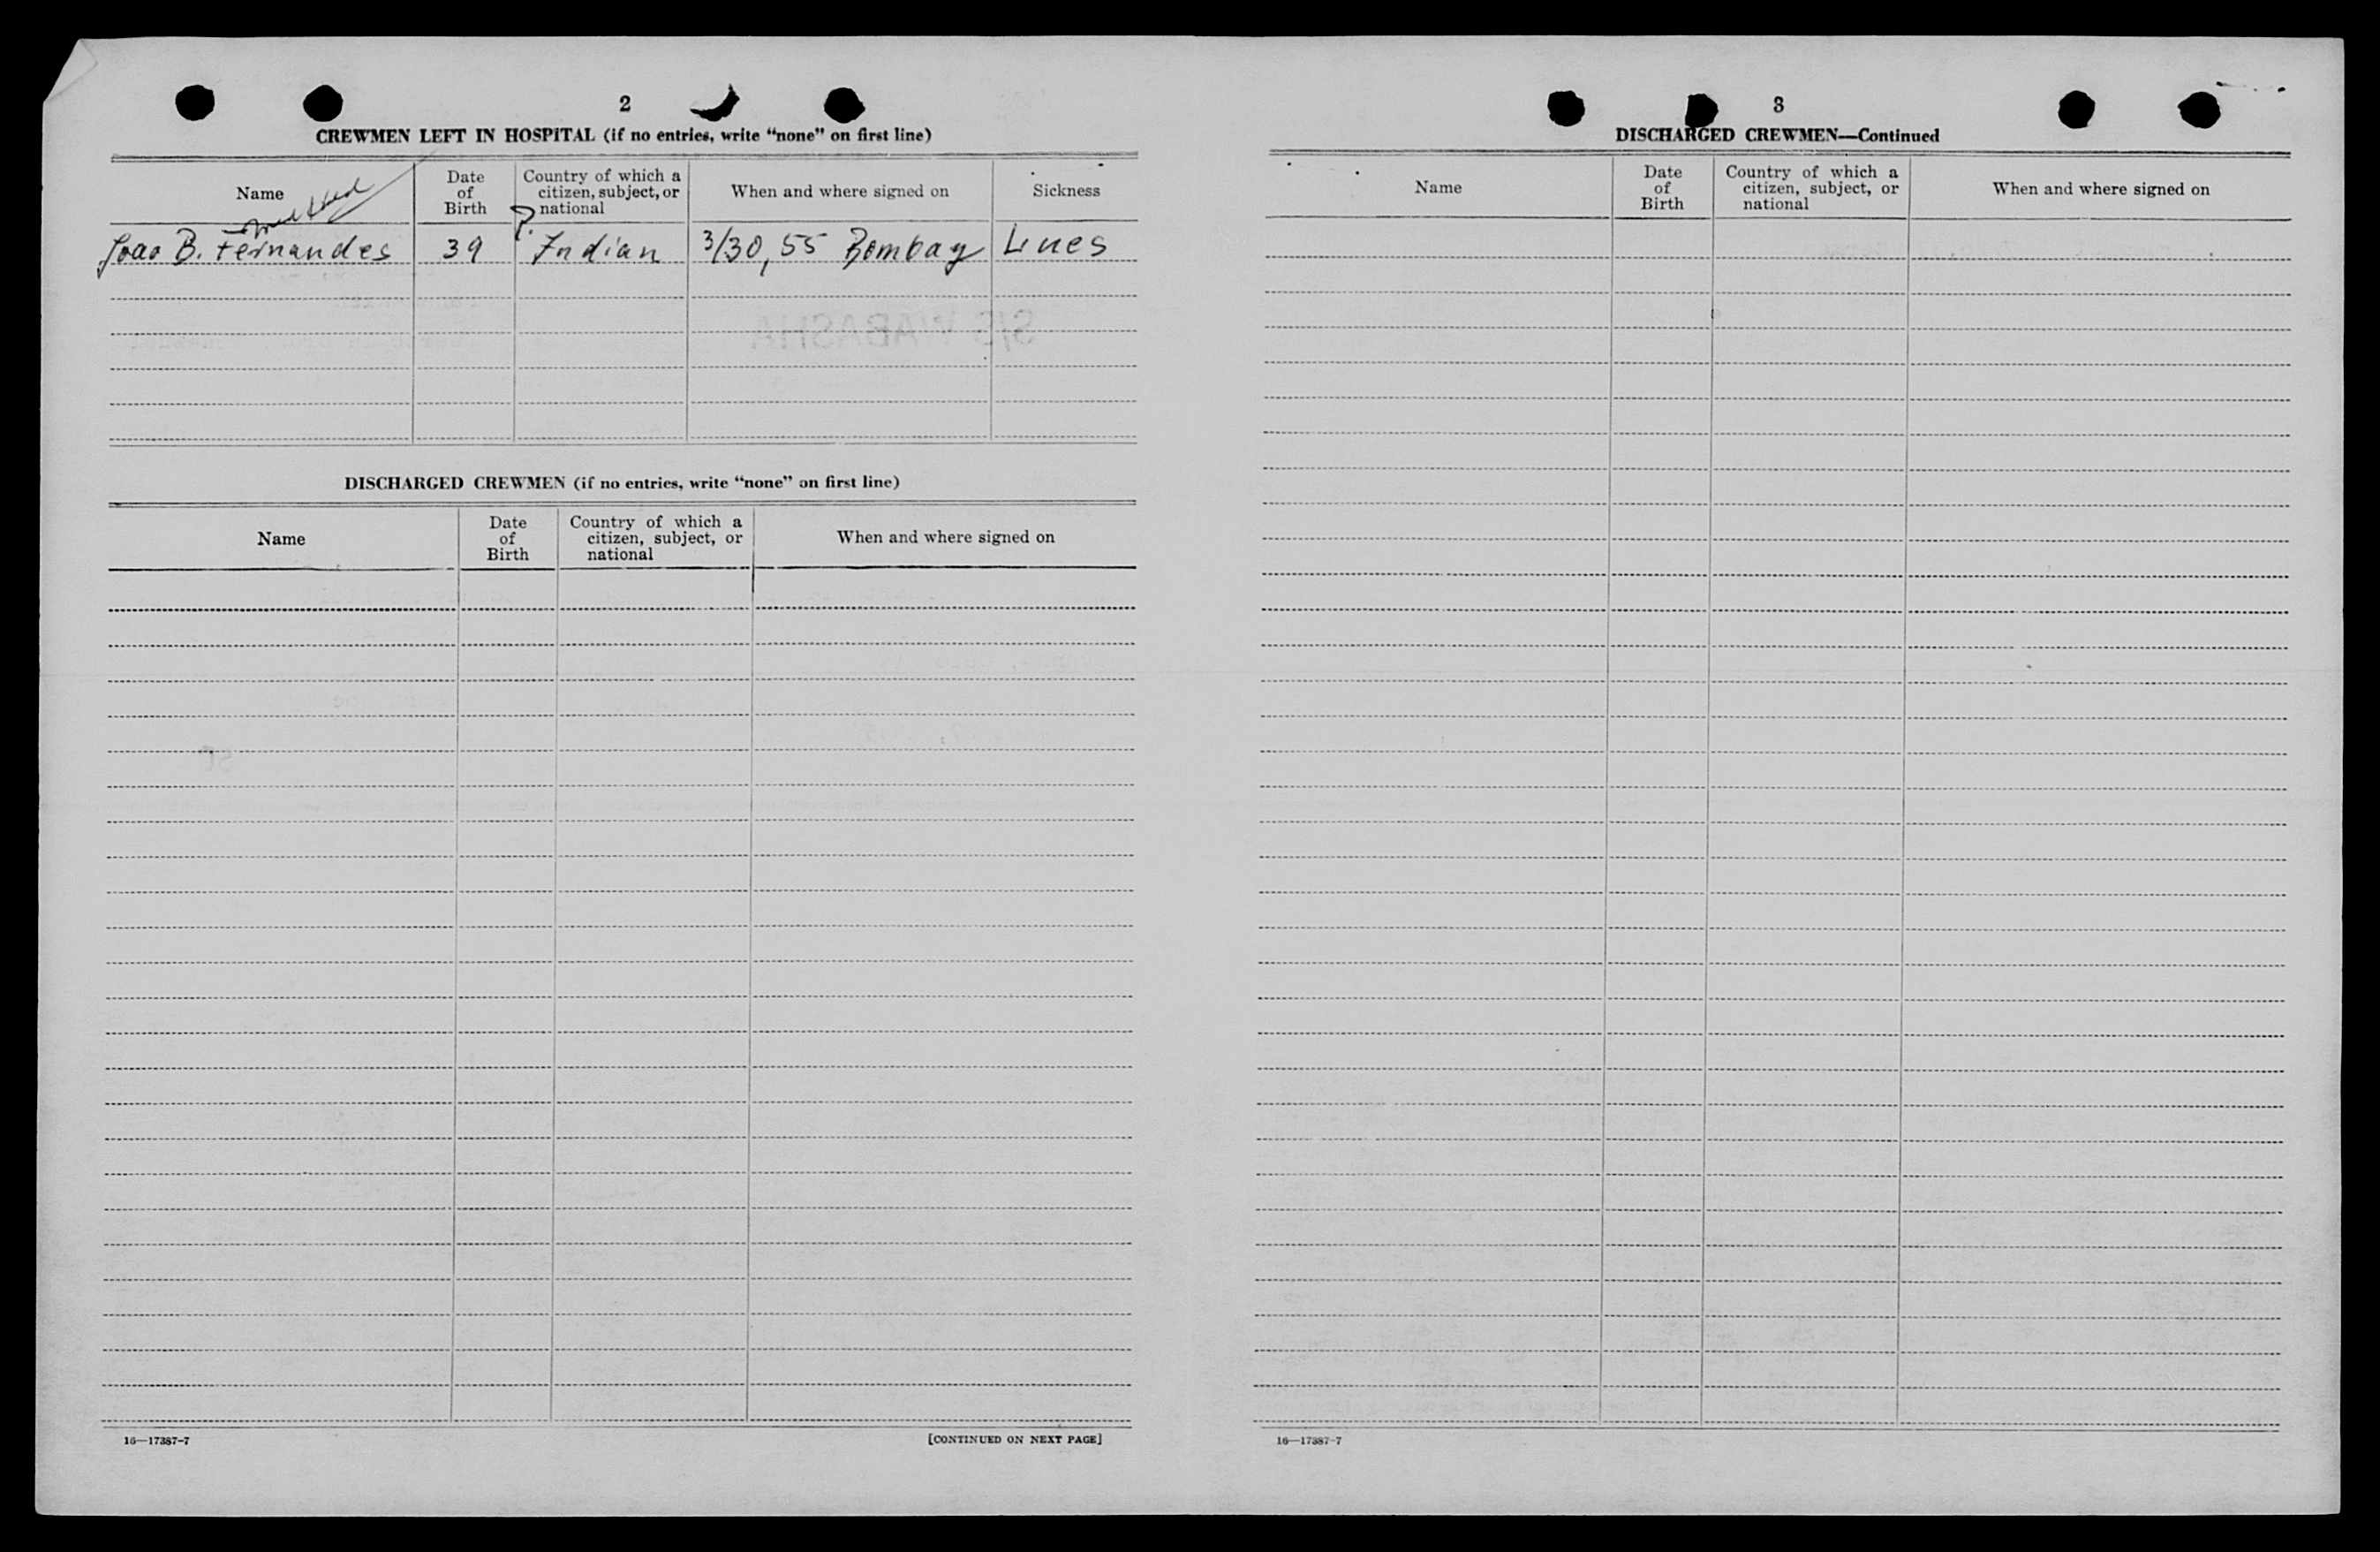 2
CREWMEN LEFT IN HOSPITAL (if no entries, write “none” on first line)
Name
Date of Birth
Country of which a citizen, subject, or national
When and where signed on
Sickness
Joao B. Fernandes 39 P. Indian 3/30, 55 Bombay Lues
S/S WABASHA
DISCHARGED CREWMEN (if no entries, write “none” on first line)
Name
Date of Birth
Country of which a citizen, subject, or national
When and where signed on
16—17387-7
[CONTINUED ON NEXT PAGE]
3
DISCHARGED CREWMEN—Continued
Name
Date of Birth
Country of which a citizen, subject, or national
When and where signed on
16—17387-7